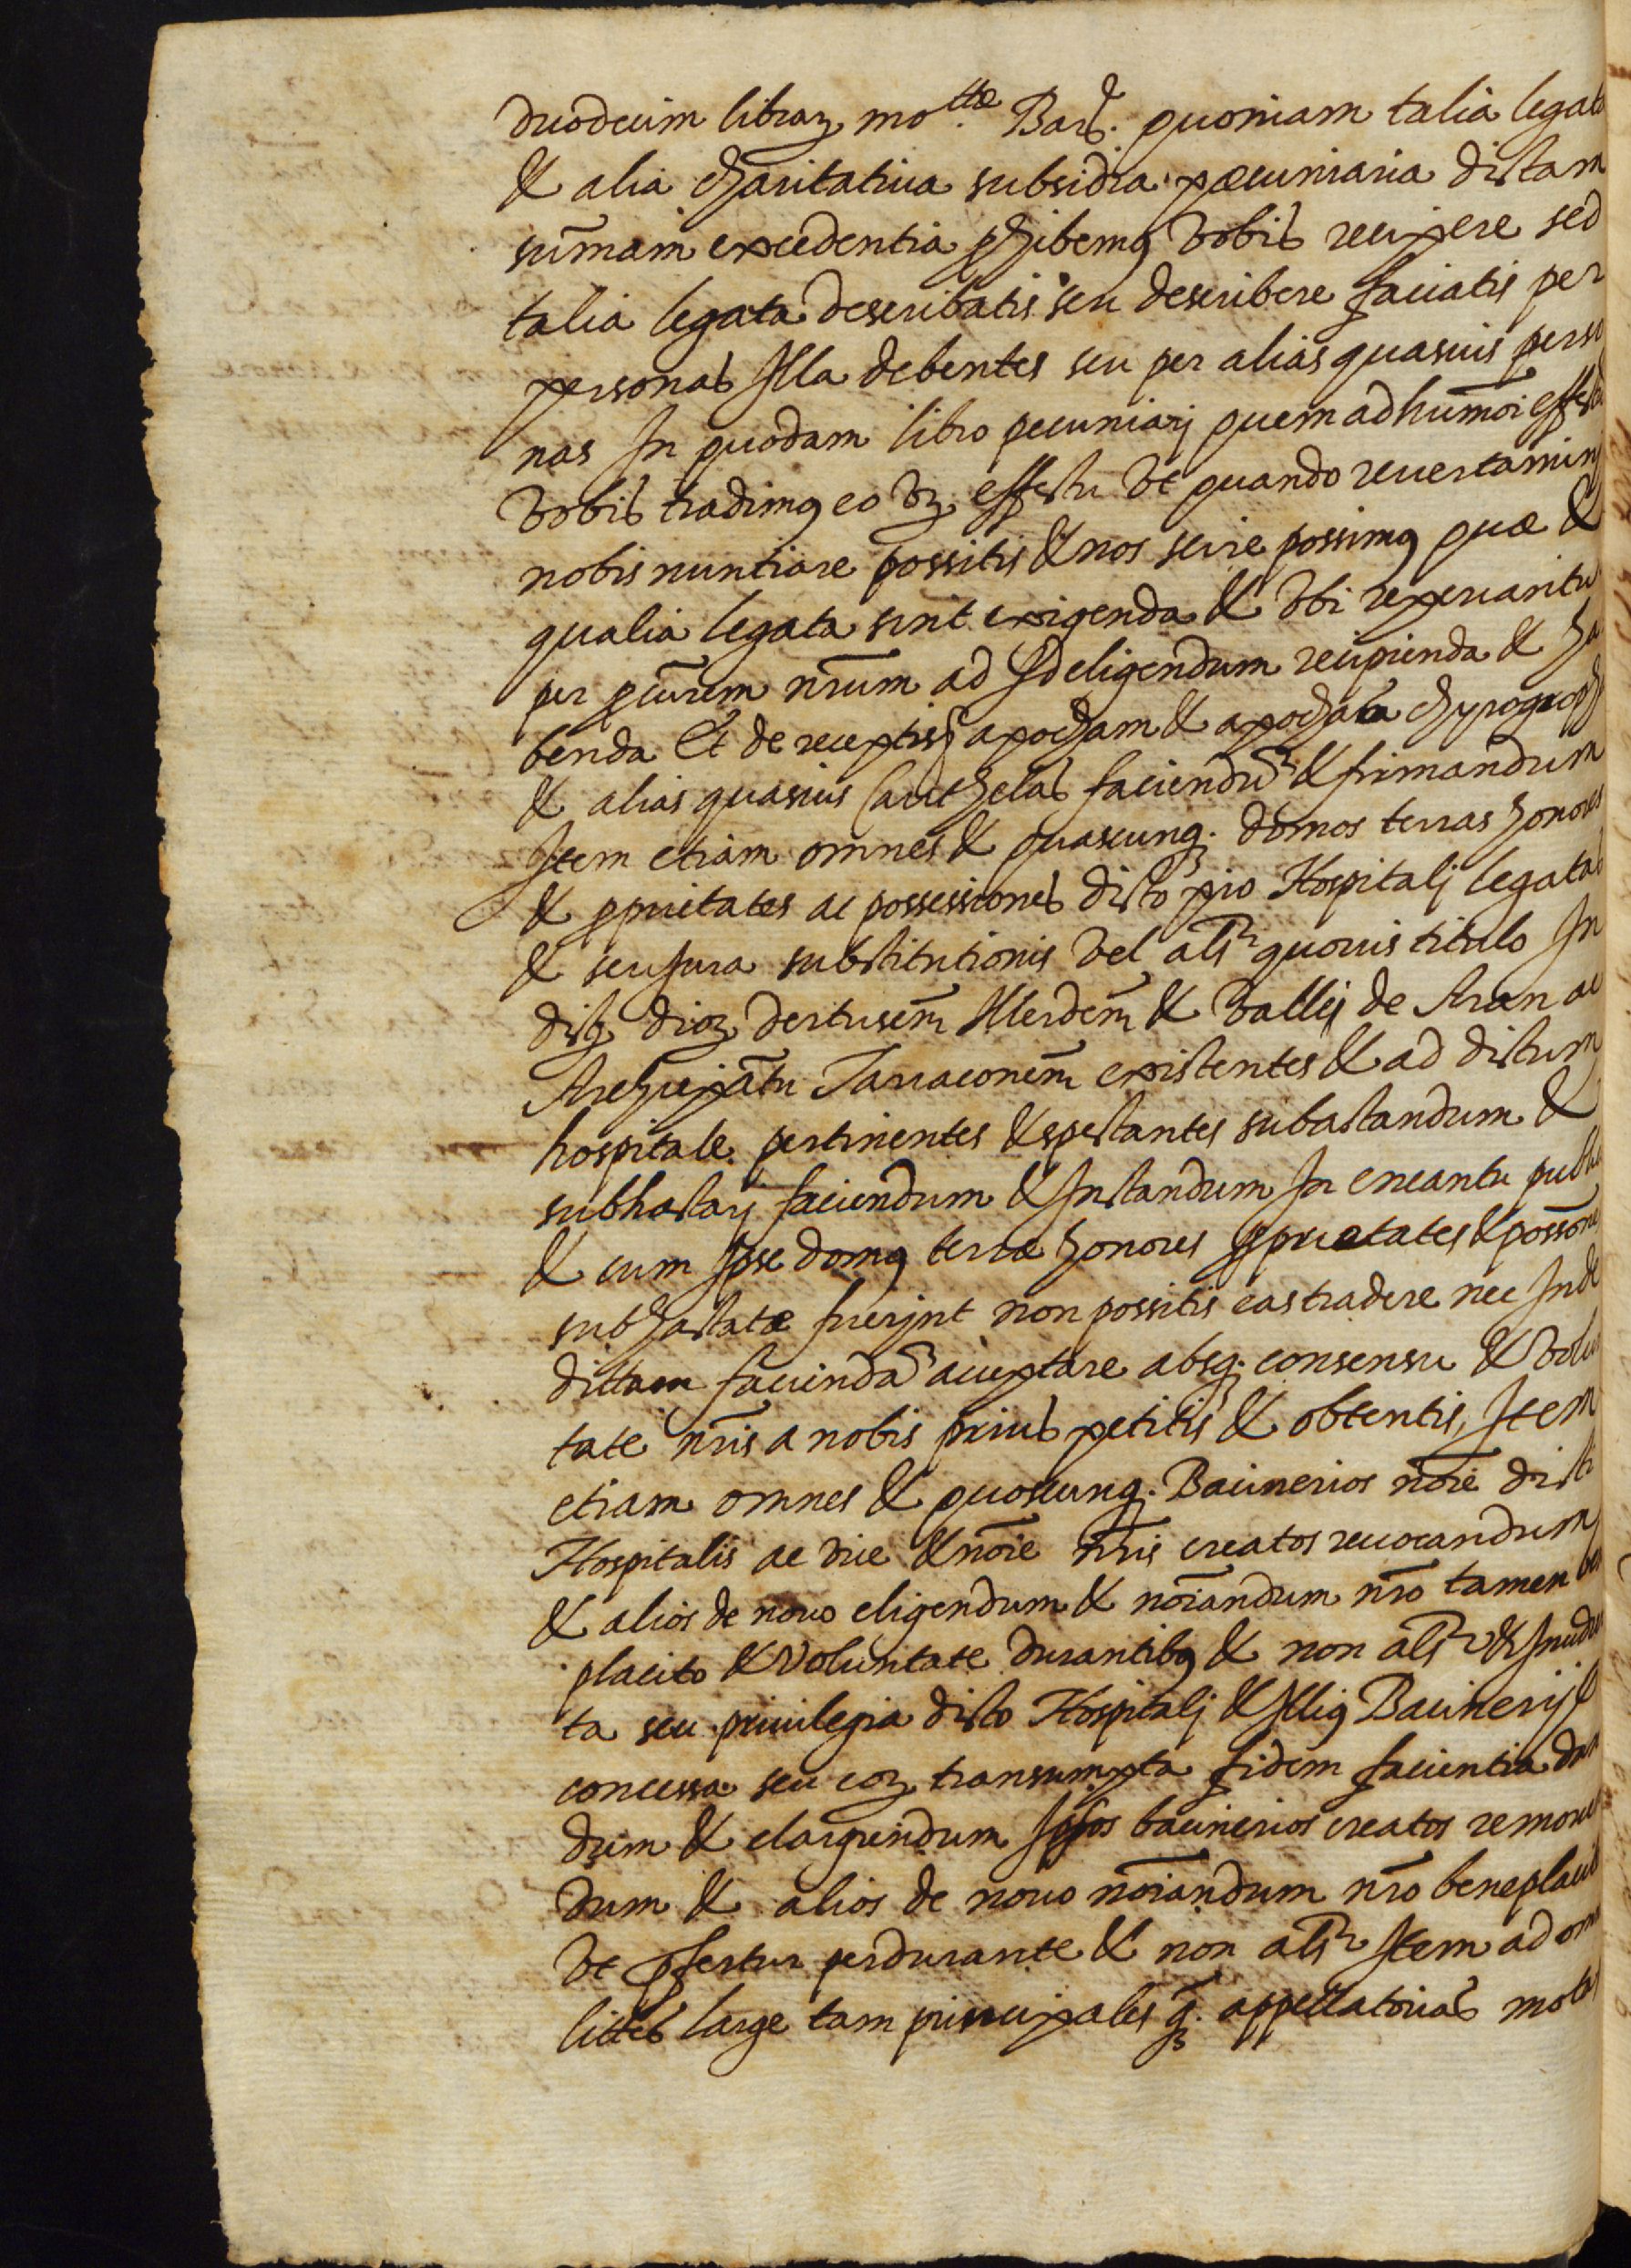 duodecim libraȝ mo.ttæ Barᵉ. quoniam talia legata
& alia charitatiua subsidia pæcuniaria dictam
sum̄am excedentia phibemꝯ vobis recipere sed
talia legata describatis seu describere faciatis per
personas Illa debentes seu per alias quasuis perso
nas In quodam libro pecuniarj quem ad humōi effectū
vobis tradimꝯ eo vȝ effectu vt quando reuertaminj
nobis nuntiare possitis & nos scire possimꝯ quæ &
qualia legata sint exigenda & vbi reperiantur
per pc̄urem nr̄um ad Id eligendum recipienda & ha
benda Et de receptis apocham & apochas chyrograph
& alias quasuis Cauthelas faciendū & firmandum
Item etiam omnes & quascunq. domos terras honores
& pprietates ac possessiones dicto pio Hospitalj legatas
& seu Jura substitutionis vel als̄ quouis titulo In
dictȝ diocȝ dertusēn̄ Illerdēn̄ & vallis de Aran ac
Archiepātu Tarraconēn̄ existentes & ad dictum
hospitale pertinentes & spectantes subastandum &
subhastarj faciendum & Instandum In encantu publico
& cum Ipse domꝯ terræ honores pprietates & possōnes
subhastatæ fuerjnt non possitis eas tradere nec Inde
dittam faciendā acceptare absq. consensu & volun
tate nr̄is a nobis prius petitis & obtentis, Item
etiam omnes & quoscunq. Bacinerios nōie dicti
Hospitalis ac vice & nōie nr̄is creatos reuocandum
& alios de nouo eligendum & nōiandum nr̄o tamen bene
placito & voluntate durantibꝯ & non als̄ & Indul
ta seu priuilegia dicto Hospitalj & Illiꝯ Bacinerijs
concessa seu eoȝ transumpta fidem facientia dan
dum & elargiendum Ipsos bacinerios creatos remouen
dum & alios de nouo nōiandum nr̄o beneplacito
vt pfertur perdurante & non als̄ Item ad omnes
littes large tam principales q̄. appellatorias motas